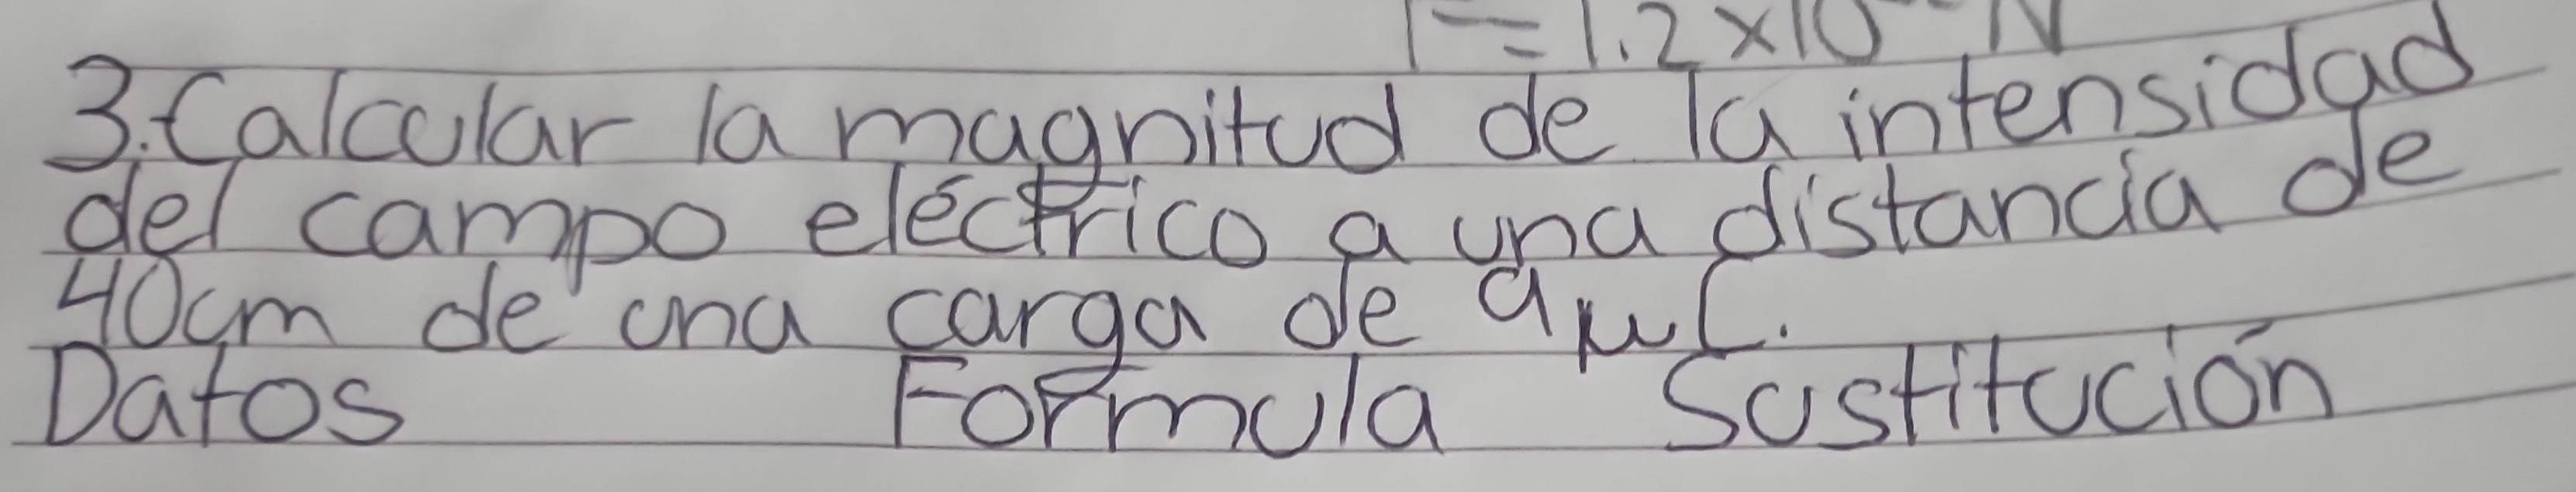 F=1.2x10 N
3.Calcular la magnitud de la intensidad
del campo eléctrico a una distancia de
40cm de una carga de 9μC.
Datos Formula Sustitución